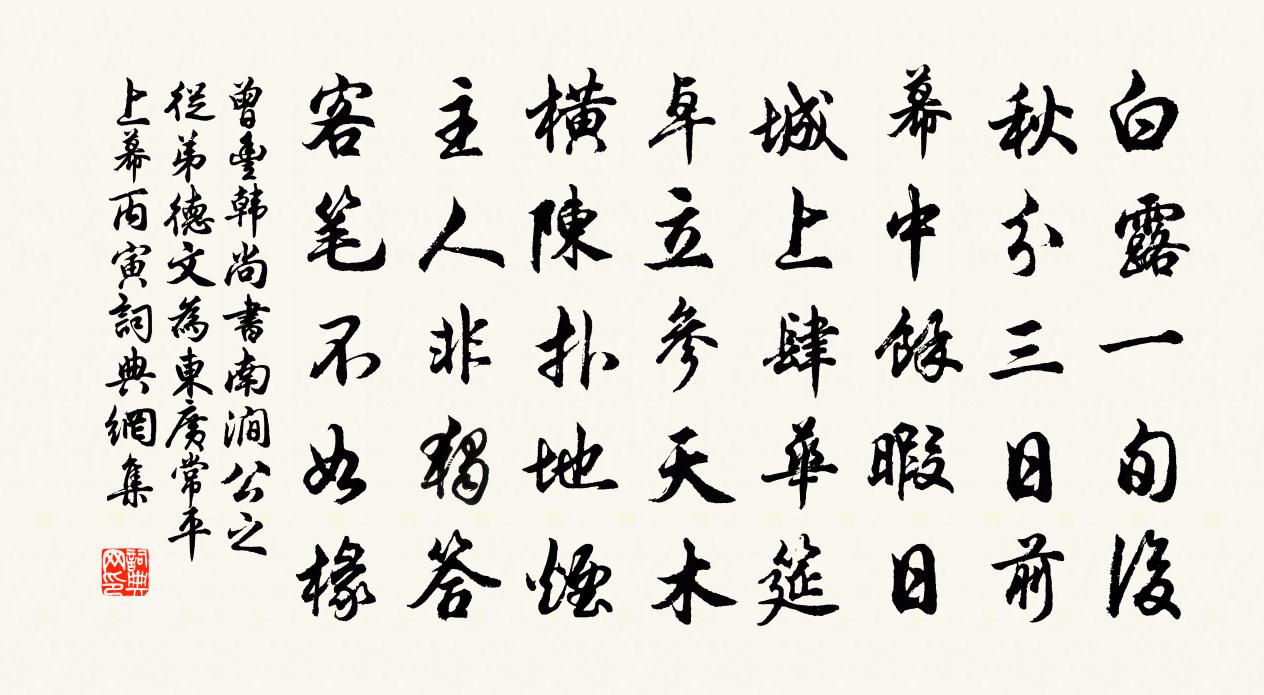 白露一旬後
秋分三日前
幕中餘暇日
城上肆華筵
卓立參天木
橫陳扑地煙
主人非獨答
客笔不如椽
曾豊韩尚書南澗公之
從弟德文為東廣常平
上幕丙寅詞典網集
詞典
网印